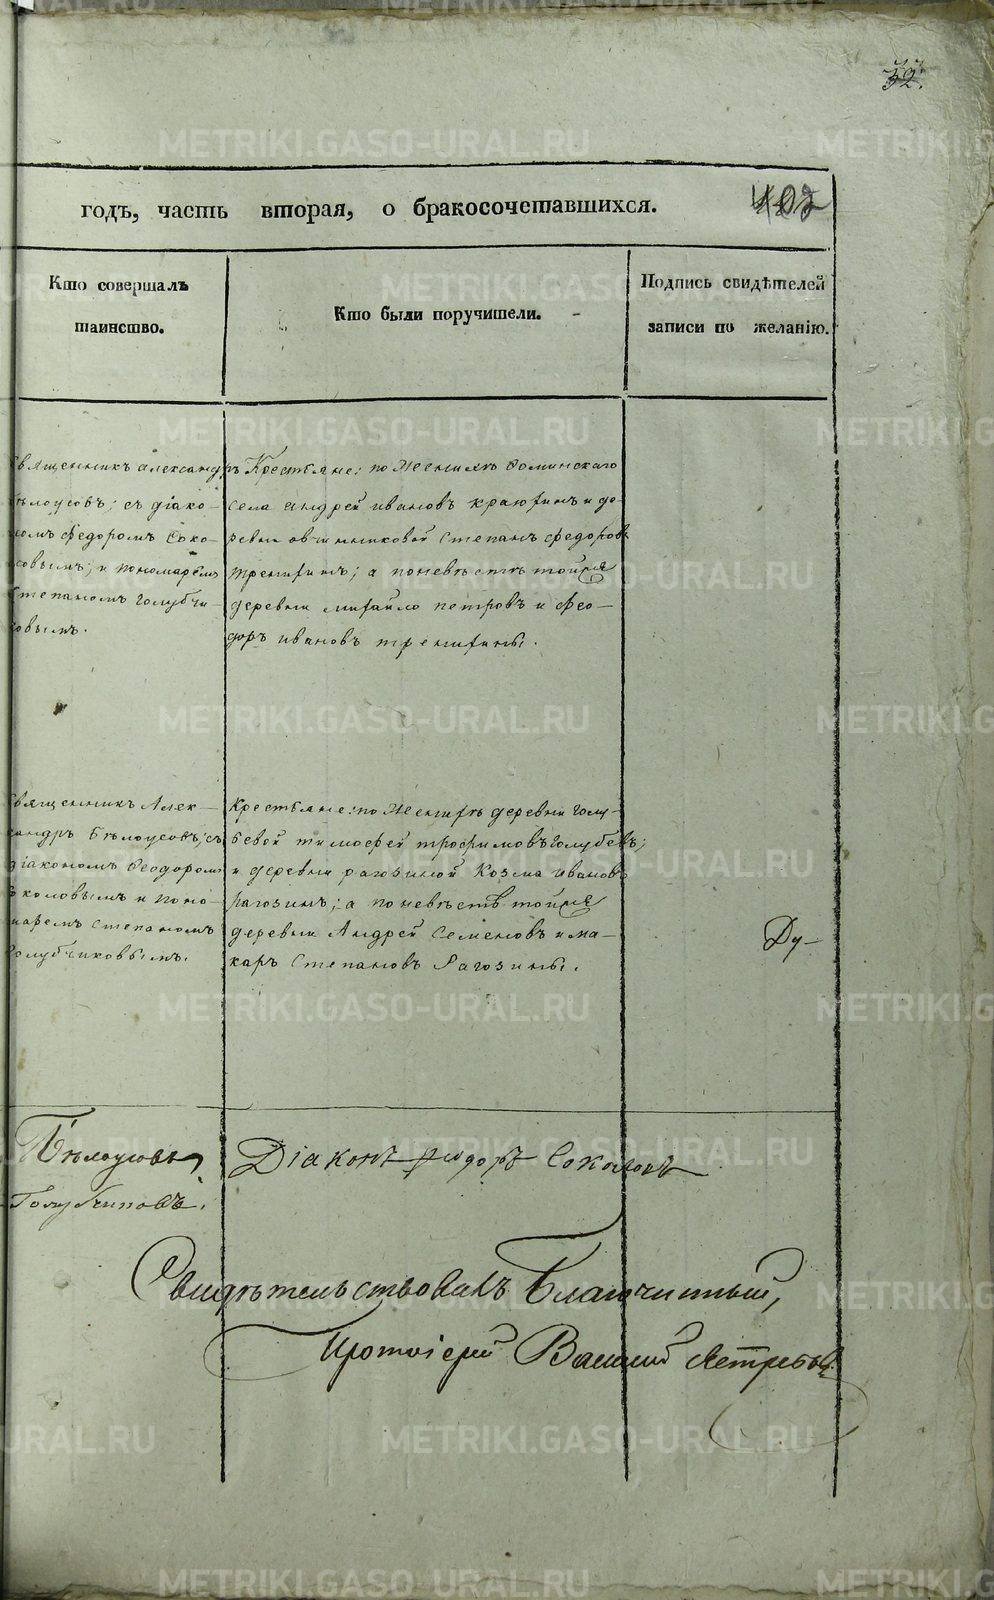 32.
годъ, часть вторая, о бракосочетавшихся.
402
Кто совершалъ
таинство.
Кто были поручители.
Подпись свидѣтелей
записи по желанію.
вященникъ Александръ
ѣлоусовъ; съ діако-
номъ Федоромъ Соко-
ловымъ, и пономаремъ
Степаномъ Голубчи-
ковымъ.
Крестьяне: по женихѣ Фоминскаго
села Андрей Ивановъ и де-
ревни Овчинниковой Степанъ Федоровъ
а по невѣстѣ той же
деревни Михайло Петровъ и Фео-
доръ Ивановъ
вященникъ Алек-
сандръ Бѣлоусовъ; съ
діакономъ Феодоромъ
Соколовымъ и поно-
маремъ Степаномъ
Голубчиковымъ.
Крестьяне: по женихѣ деревни Голу-
бевой Тимофей Трофимовъ Голубевъ;
и деревни Рагозиной Козма Ивановъ
Рагозинъ; а по невѣстѣ той же
деревни Андрей Семеновъ и Ма-
каръ Степановъ Рагозины.
Ду-
Бѣлоусовъ,
Діаконъ Феодоръ Соколовъ
Голубчиковъ.
Свидѣтельствовалъ Благочинный,
Протоіерей Василий Ястребовъ.
METRIKI.GASO-URAL.RU